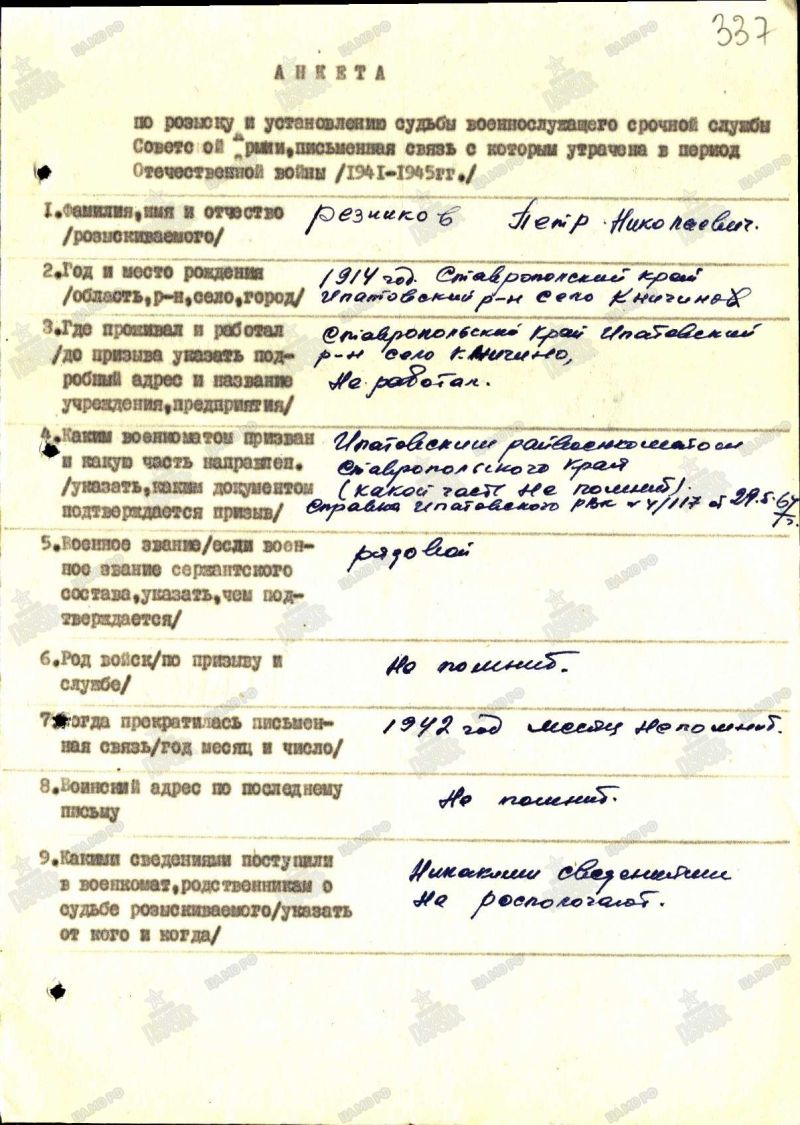 337
АНКЕТА
по розыску и установлению судьбы военнослужащего срочной службы
Советс ой Армии,письменная связь с которым утрачена в период
Отечественной войны /1941-1945гг./
1.Фамилия,имя и отчество /розыскиваемого/ Резников Петр Николаевич.
2.Год и место рождения 1914 год. Ставропольский край
/область,р-н,село,город/ Ипатовский р-н село Кничино
3.Где проживал и работал Ставропольский Край Ипатовский
/до призыва указать под- р-н село Кничино,
робный адрес и название Не работал.
учреждения,предприятия/
4.Каким военкоматом призван Ипатовским райвоенкоматом
и какую часть направлен. Ставропольского Края
/указать,каким документом (какой часть не помнит).
подтверждается призыв/ Справка Ипатовского РВК № 4/117 от 29.5.67г.
5.Военное звание/если воен- рядовой
ное звание сержантского
состава,указать,чем под-
тверждается/
6.Род войск/по призыву и Не помнит.
службе/
7.Когда прекратилась письмен- 1942 год месяц не помнит.
ная связь/год месяц и число/
8.Воинский адрес по последнему Не помнит.
письму
9.Какими сведениями поступили Никакими сведениями
в военкомат,родственникам о не распологают.
судьбе розыскиваемого/указать
от кого и когда/
ЦАМО РФ